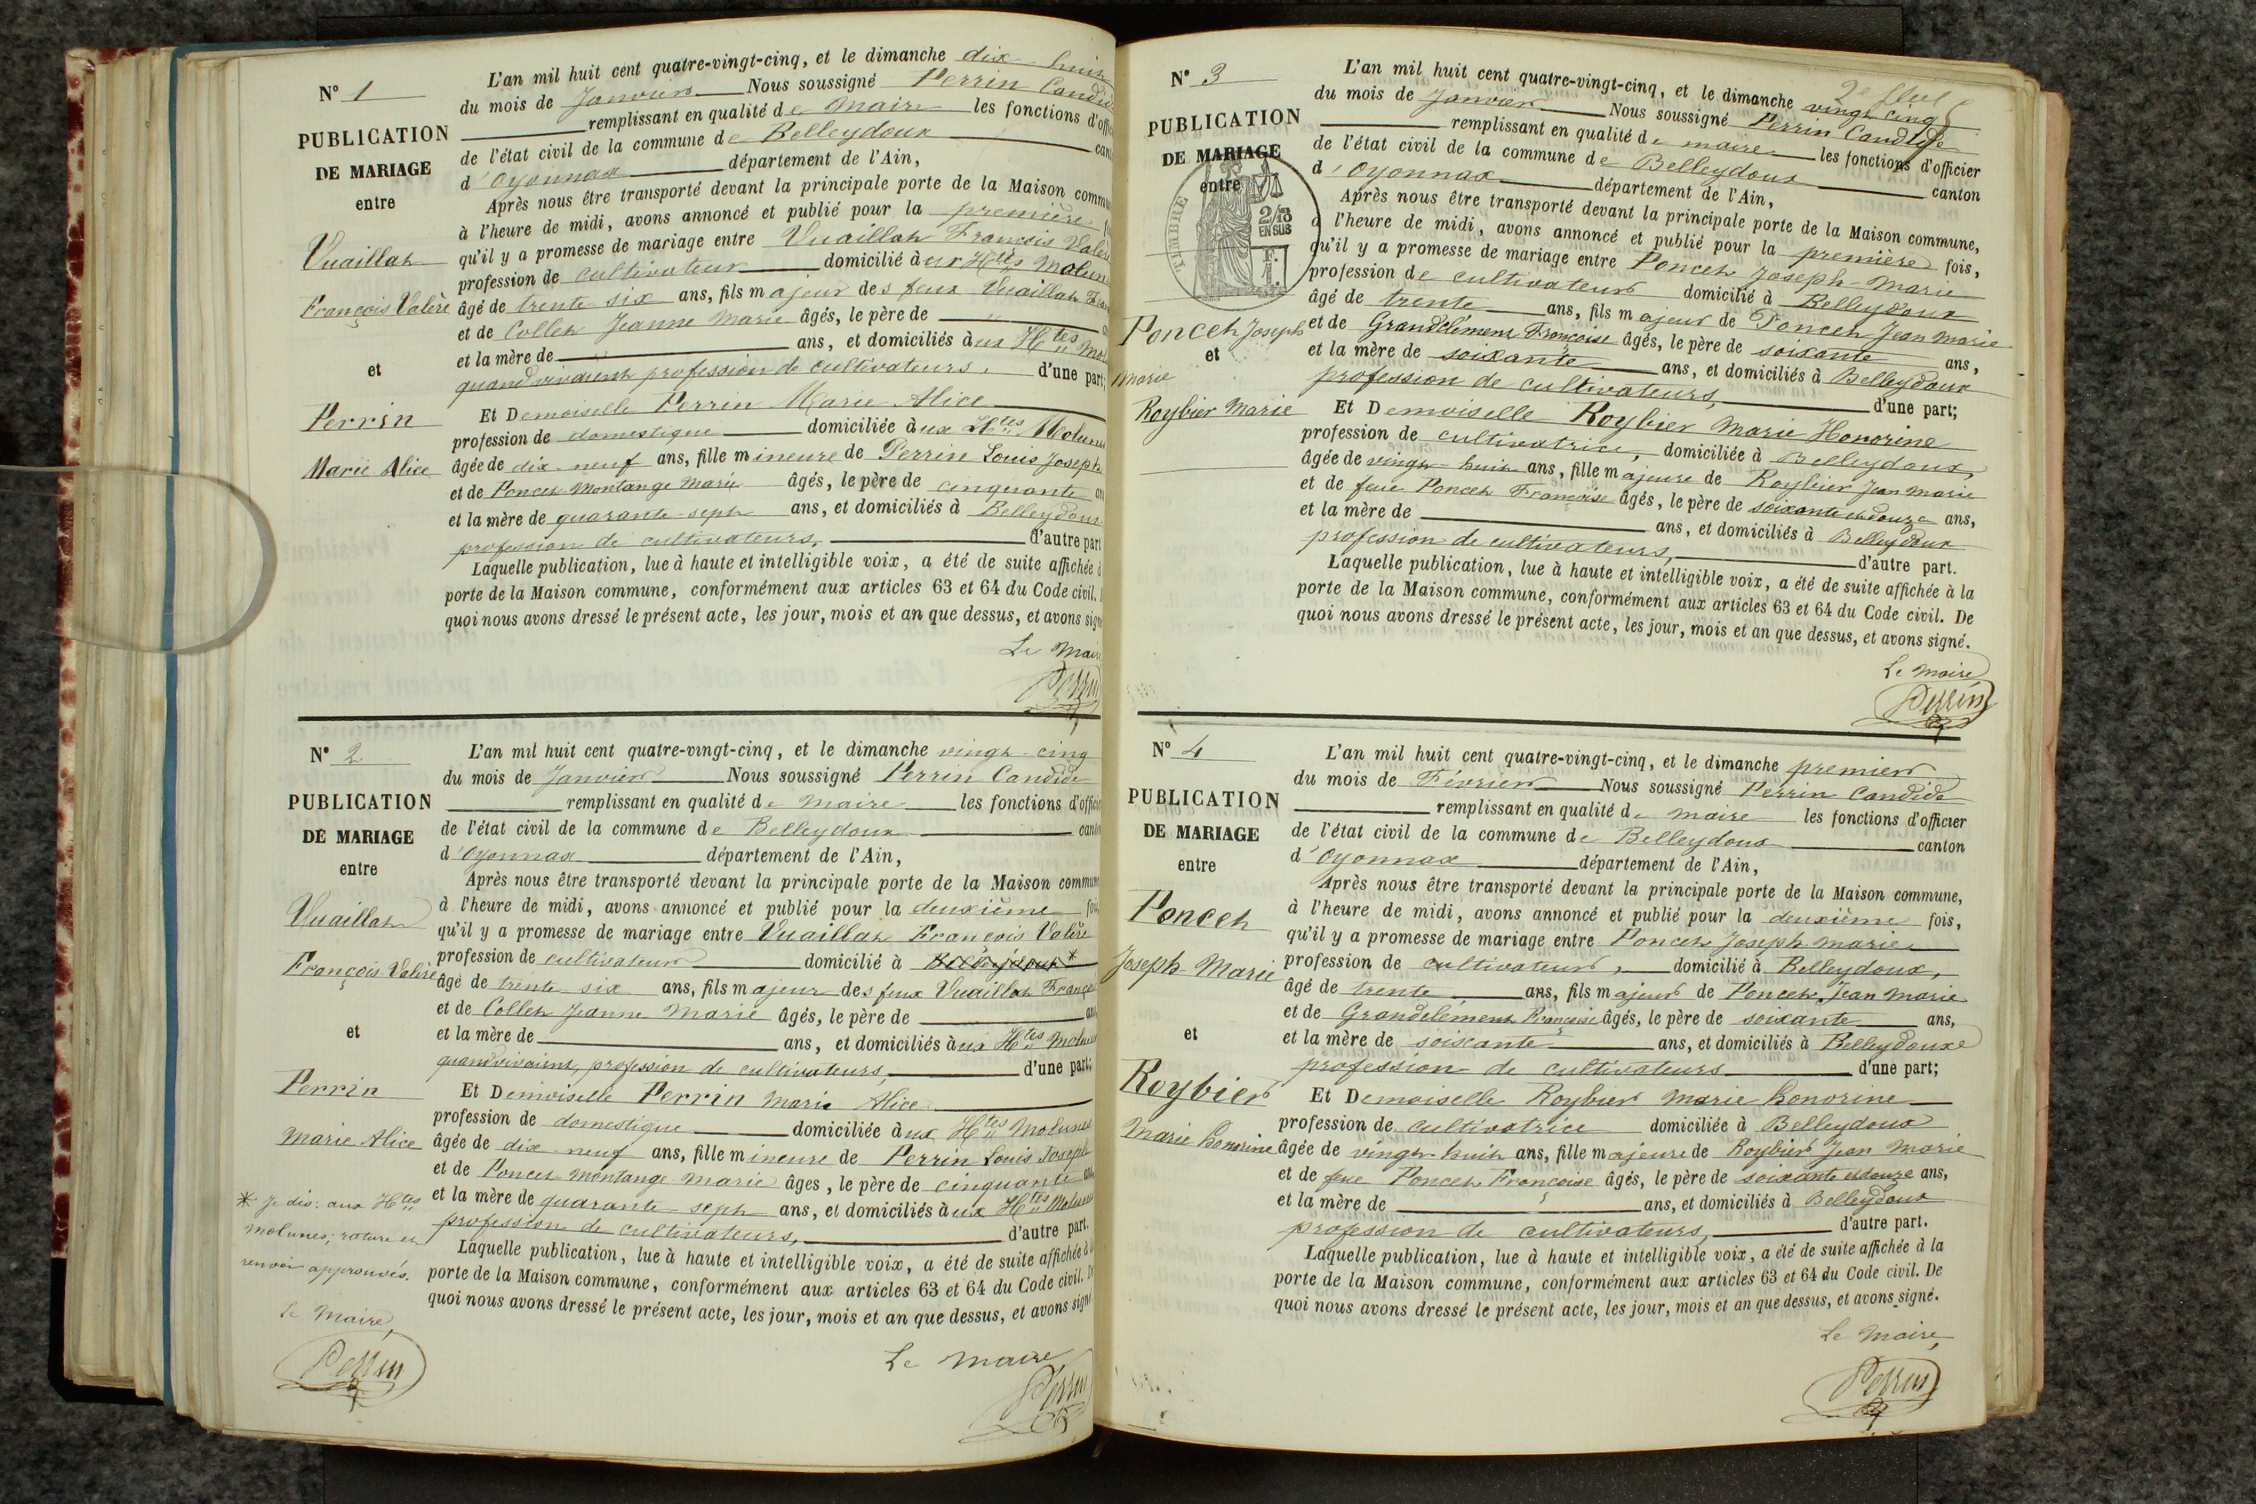 N° 1
PUBLICATION
DE MARIAGE
entre
Vuaillat
François Valère
et
Perrin
Marie Alice
L'an mil huit cent quatre-vingt-cinq, et le dimanche dix-huit
du mois de Janvier Nous soussigné Perrin Candide
remplissant en qualité de Maire les fonctions d'offi
de l'état civil de la commune de Belleydoux can
d'Oyonnax département de l'Ain,
Après nous être transporté devant la principale porte de la Maison commu
à l'heure de midi, avons annoncé et publié pour la première
qu'il y a promesse de mariage entre Vuaillat François Valère
profession de cultivateur domicilié aux Htes Molunes
âgé de trente-six ans, fils majeur des feux Vuaillat
et de Collet Jeanne Marie âgés, le père de
et la mère de ans, et domiciliés aux Htes Mol
quand vivaient profession de cultivateurs, d'une part;
Et Demoiselle Perrin Marie Alice
profession de domestique domiciliée aux Htes Molunes
âgée de dix-neuf ans, fille mineure de Perrin Louis Joseph
et de Poncet Montange Marie âgés, le père de cinquante an
et la mère de quarante-sept ans, et domiciliés à Belleydoux
profession de cultivateurs, d'autre part
Laquelle publication, lue à haute et intelligible voix, a été de suite affichée à
porte de la Maison commune, conformément aux articles 63 et 64 du Code civil.
quoi nous avons dressé le présent acte, les jour, mois et an que dessus, et avons sign
Le Maire
Perrin
N° 2
PUBLICATION
DE MARIAGE
entre
Vuaillat
François Valère
et
Perrin
Marie Alice
* Je dis: aux Htes
Molunes; rature et
renvoi approuvés.
Le Maire,
Perrin
L'an mil huit cent quatre-vingt-cinq, et le dimanche vingt-cinq
du mois de Janvier Nous soussigné Perrin Candide
remplissant en qualité de Maire les fonctions d'officie
de l'état civil de la commune de Belleydoux canton
d'Oyonnax département de l'Ain,
Après nous être transporté devant la principale porte de la Maison commune
à l'heure de midi, avons annoncé et publié pour la deuxième fois,
qu'il y a promesse de mariage entre Vuaillat François Valère
profession de cultivateur domicilié à Belleydoux *
âgé de trente-six ans, fils majeur des feux Vuaillat François
et de Collet Jeanne Marie âgés, le père de ans
et la mère de ans, et domiciliés aux Htes Molunes
quand vivaient, profession de cultivateurs, d'une part;
Et Demoiselle Perrin Marie Alice
profession de domestique domiciliée aux Htes Molunes
âgée de dix-neuf ans, fille mineure de Perrin Louis Joseph
et de Poncet Montange Marie âges, le père de cinquante ans
et la mère de quarante-sept ans, et domiciliés aux Htes Molunes
profession de cultivateurs, d'autre part.
Laquelle publication, lue à haute et intelligible voix, a été de suite affichée à
porte de la Maison commune, conformément aux articles 63 et 64 du Code civil. De
quoi nous avons dressé le présent acte, les jour, mois et an que dessus, et avons signé
Le Maire,
Perrin
N° 3
PUBLICATION
DE MARIAGE
entre
TIMBRE
2/10
EN SUS
F.
1.
Poncet Joseph
et
Marie
Roybier Marie
L'an mil huit cent quatre-vingt-cinq, et le dimanche vingt-cinq
du mois de Janvier Nous soussigné Perrin Candide
remplissant en qualité de maire les fonctions d'officier
de l'état civil de la commune de Belleydoux canton
d'Oyonnax département de l'Ain,
Après nous être transporté devant la principale porte de la Maison commune,
à l'heure de midi, avons annoncé et publié pour la première fois,
qu'il y a promesse de mariage entre Poncet Joseph-Marie
profession de cultivateur domicilié à Belleydoux
âgé de trente ans, fils majeur de Poncet Jean Marie
et de Grandclément Françoise âgés, le père de soixante ans,
et la mère de soixante ans, et domiciliés à Belleydoux
profession de cultivateurs, d'une part;
Et Demoiselle Roybier Marie Honorine
profession de cultivatrice, domiciliée à Belleydoux,
âgée de vingt-huit ans, fille majeure de Roybier Jean Marie
et de feue Poncet Françoise âgés, le père de soixante et douze ans,
et la mère de ans, et domiciliés à Belleydoux
profession de cultivateurs, d'autre part.
Laquelle publication, lue à haute et intelligible voix, a été de suite affichée à la
porte de la Maison commune, conformément aux articles 63 et 64 du Code civil. De
quoi nous avons dressé le présent acte, les jour, mois et an que dessus, et avons signé.
Le Maire
Perrin
N° 4
PUBLICATION
DE MARIAGE
entre
Poncet
Joseph-Marie
et
Roybier
Marie honorine
L'an mil huit cent quatre-vingt-cinq, et le dimanche premier
du mois de Février Nous soussigné Perrin Candide
remplissant en qualité de maire les fonctions d'officier
de l'état civil de la commune de Belleydoux canton
d'Oyonnax département de l'Ain,
Après nous être transporté devant la principale porte de la Maison commune,
à l'heure de midi, avons annoncé et publié pour la deuxième fois,
qu'il y a promesse de mariage entre Poncet Joseph Marie
profession de cultivateur, domicilié à Belleydoux,
âgé de trente ans, fils majeur de Poncet Jean Marie
et de Grandclément Françoise âgés, le père de soixante ans,
et la mère de soixante ans, et domiciliés à Belleydoux
profession de cultivateurs d'une part;
Et Demoiselle Roybier Marie honorine
profession de cultivatrice domiciliée à Belleydoux
âgée de vingt-huit ans, fille majeure de Roybier Jean Marie
et de feue Poncet Françoise âgés, le père de soixante et douze ans,
et la mère de ans, et domiciliés à Belleydoux
profession de cultivateurs, d'autre part.
Laquelle publication, lue à haute et intelligible voix, a été de suite affichée à la
porte de la Maison commune, conformément aux articles 63 et 64 du Code civil. De
quoi nous avons dressé le présent acte, les jour, mois et an que dessus, et avons signé.
Le Maire,
Perrin